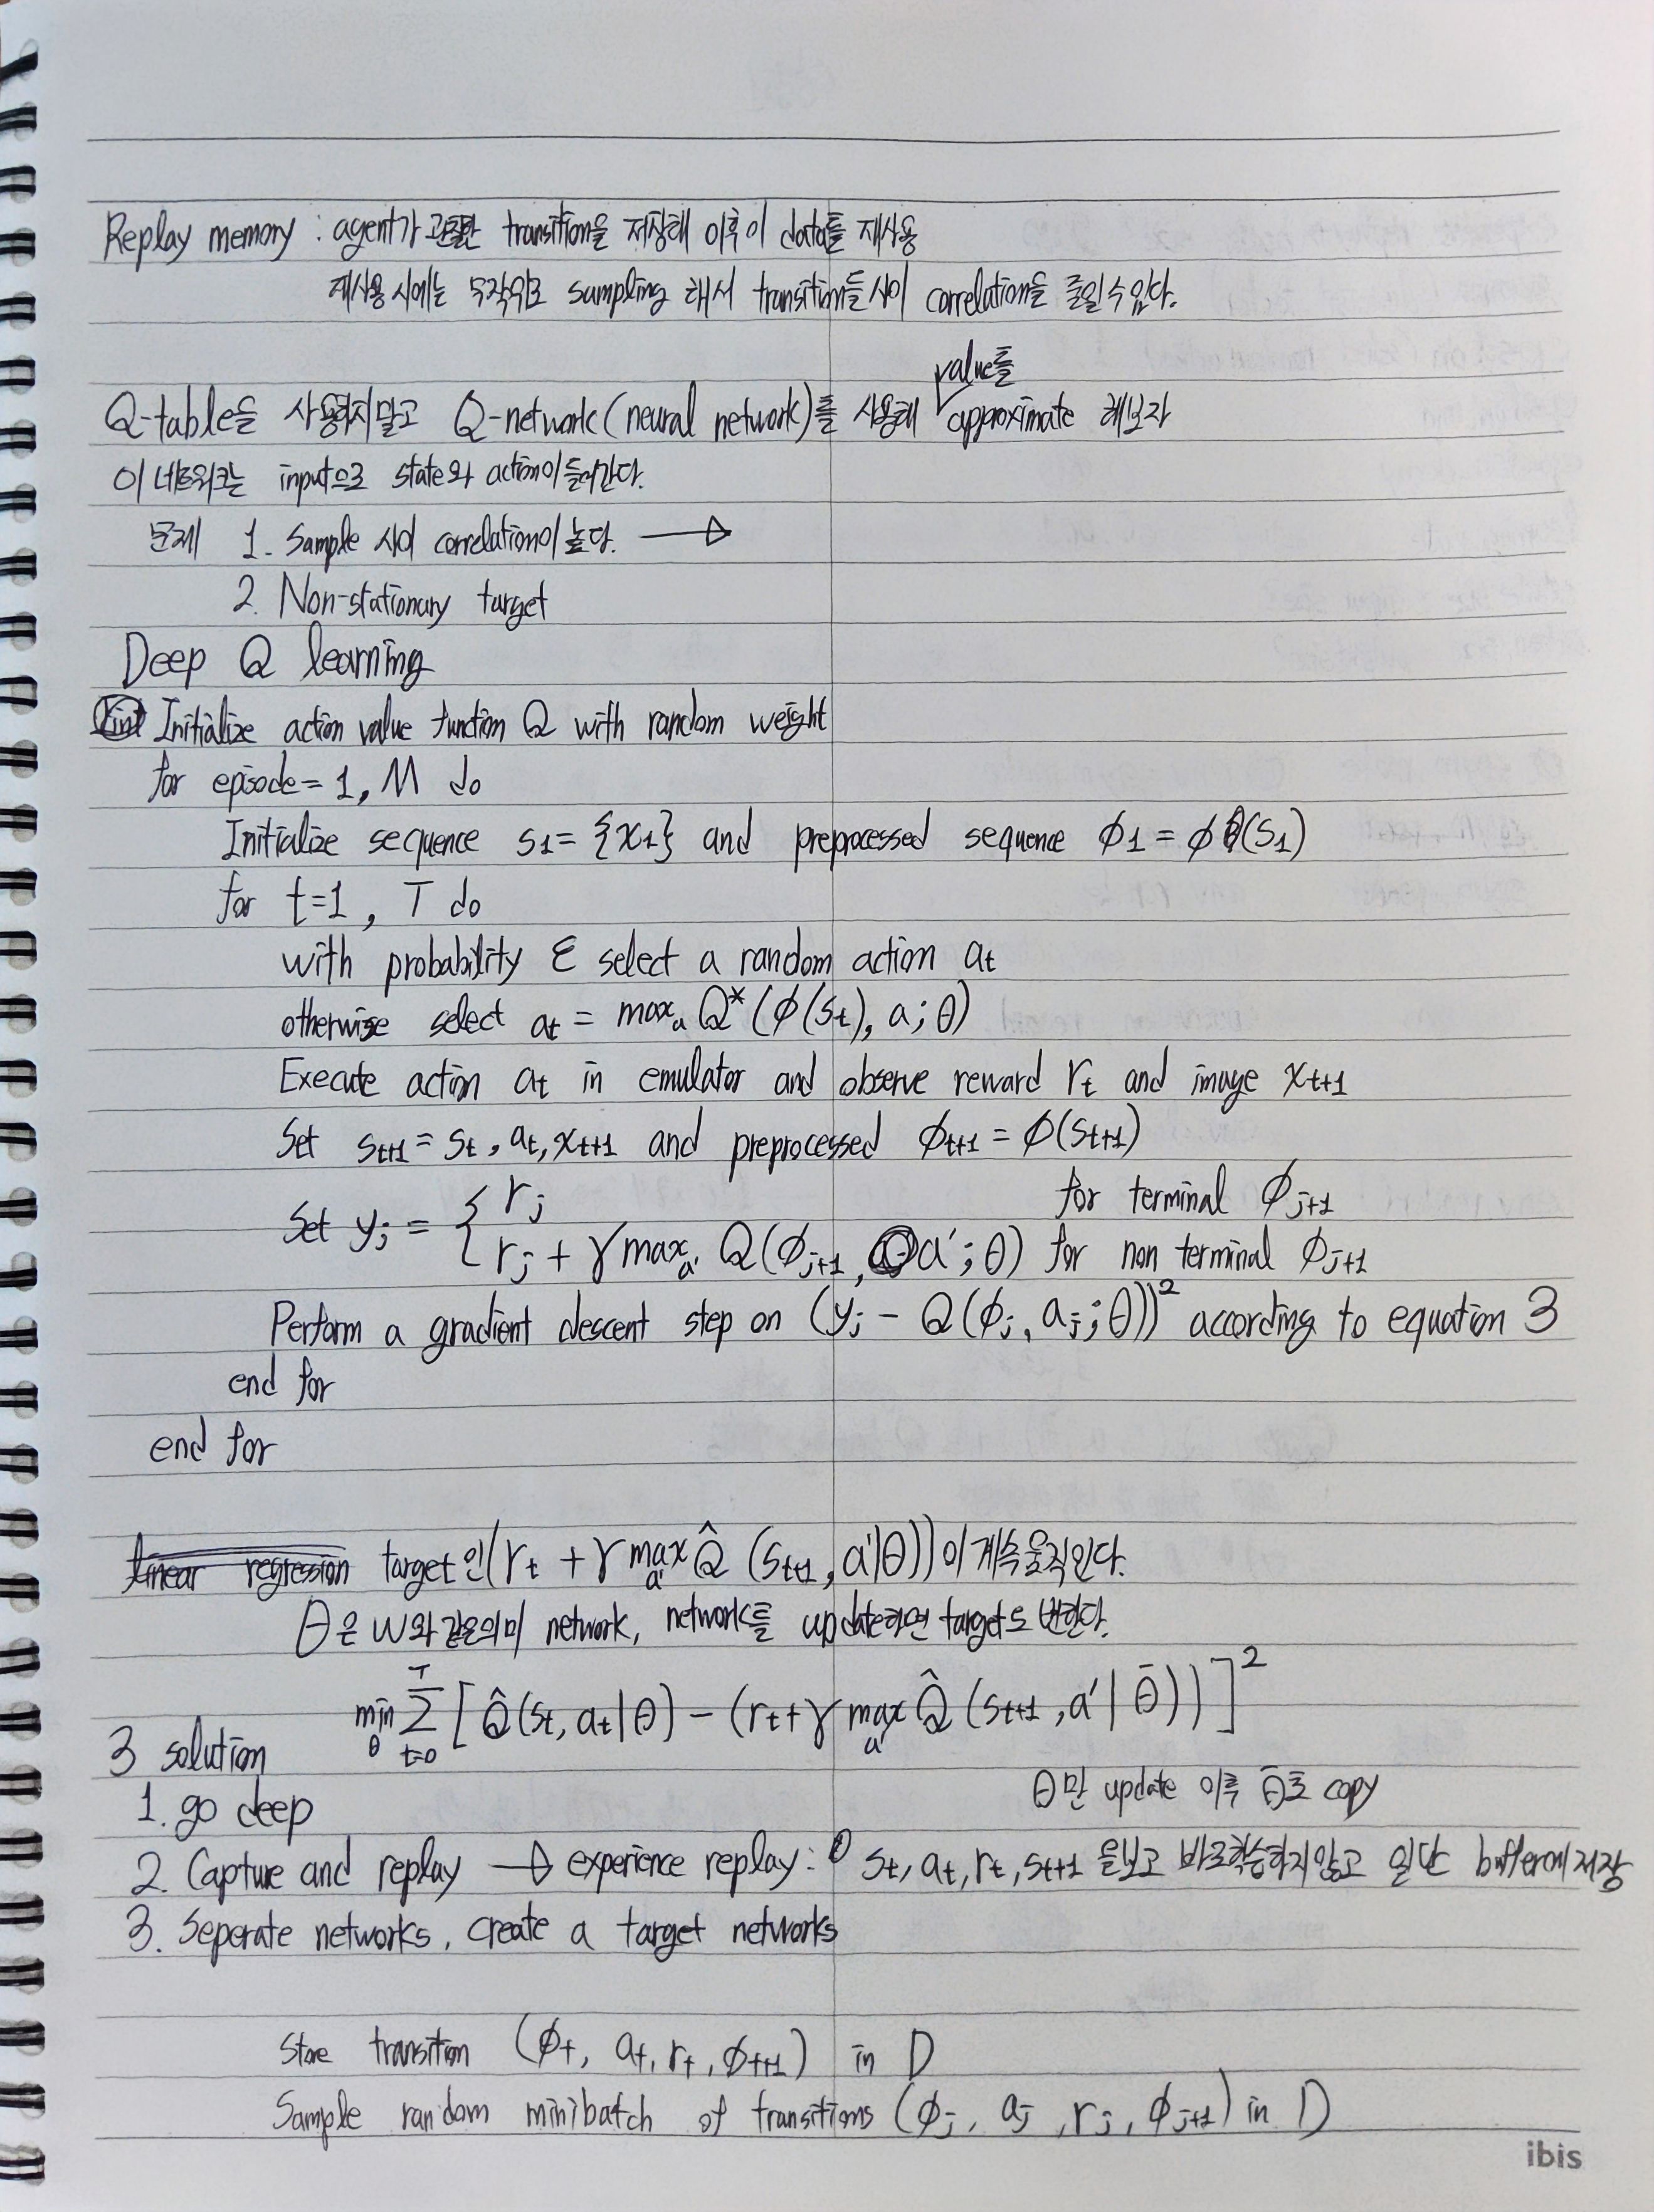 Replay memory : agent가 관찰한 transition을 저장해 이후 이 data를 재사용
재사용 시에는 무작위로 sampling 해서 transition들 사이 correlation을 줄일 수 있다.
value를
Q-table을 사용하지말고 Q-network(neural network)를 사용해 approximate 해보자
이 네트워크는 input으로 state와 action이 들어간다.
문제 1. Sample 사이 correlation이 높다. →
2. Non-stationary target
Deep Q learning
Initialize action value function Q with random weight
for episode = 1, M do
Initialize sequence s1 = {x1} and preprocessed sequence ϕ1 = ϕ(s1)
for t=1, T do
with probability ε select a random action at
otherwise select at = maxa Q*(ϕ(st), a; θ)
Execute action at in emulator and observe reward rt and image xt+1
Set st+1 = st, at, xt+1 and preprocessed ϕt+1 = ϕ(st+1)
Set yj = { rj for terminal ϕj+1
rj + γ maxa' Q(ϕj+1, a'; θ) for non terminal ϕj+1
Perform a gradient descent step on (yj - Q(ϕj, aj; θ))² according to equation 3
end for
end for
linear regression target인(rt + γ max a' Q̂ (st+1, a'|θ))이 계속 움직인다.
θ은 w와 같은의미 network, network를 update하면 target도 변한다.
min θ Σ t=0 T [Q̂(st, at|θ) - (rt + γ max a' Q̂ (st+1, a' | θ̄))]²
3 solution
θ만 update 이후 θ̄로 copy
1. go deep
2. Capture and replay → experience replay: st, at, rt, st+1 을보고 바로학습하지않고 일단 buffer에저장
3. Seperate networks, create a target networks
Store transition (ϕt, at, rt, ϕt+1) in D
Sample random minibatch of transitions (ϕj, aj, rj, ϕj+1) in D
ibis